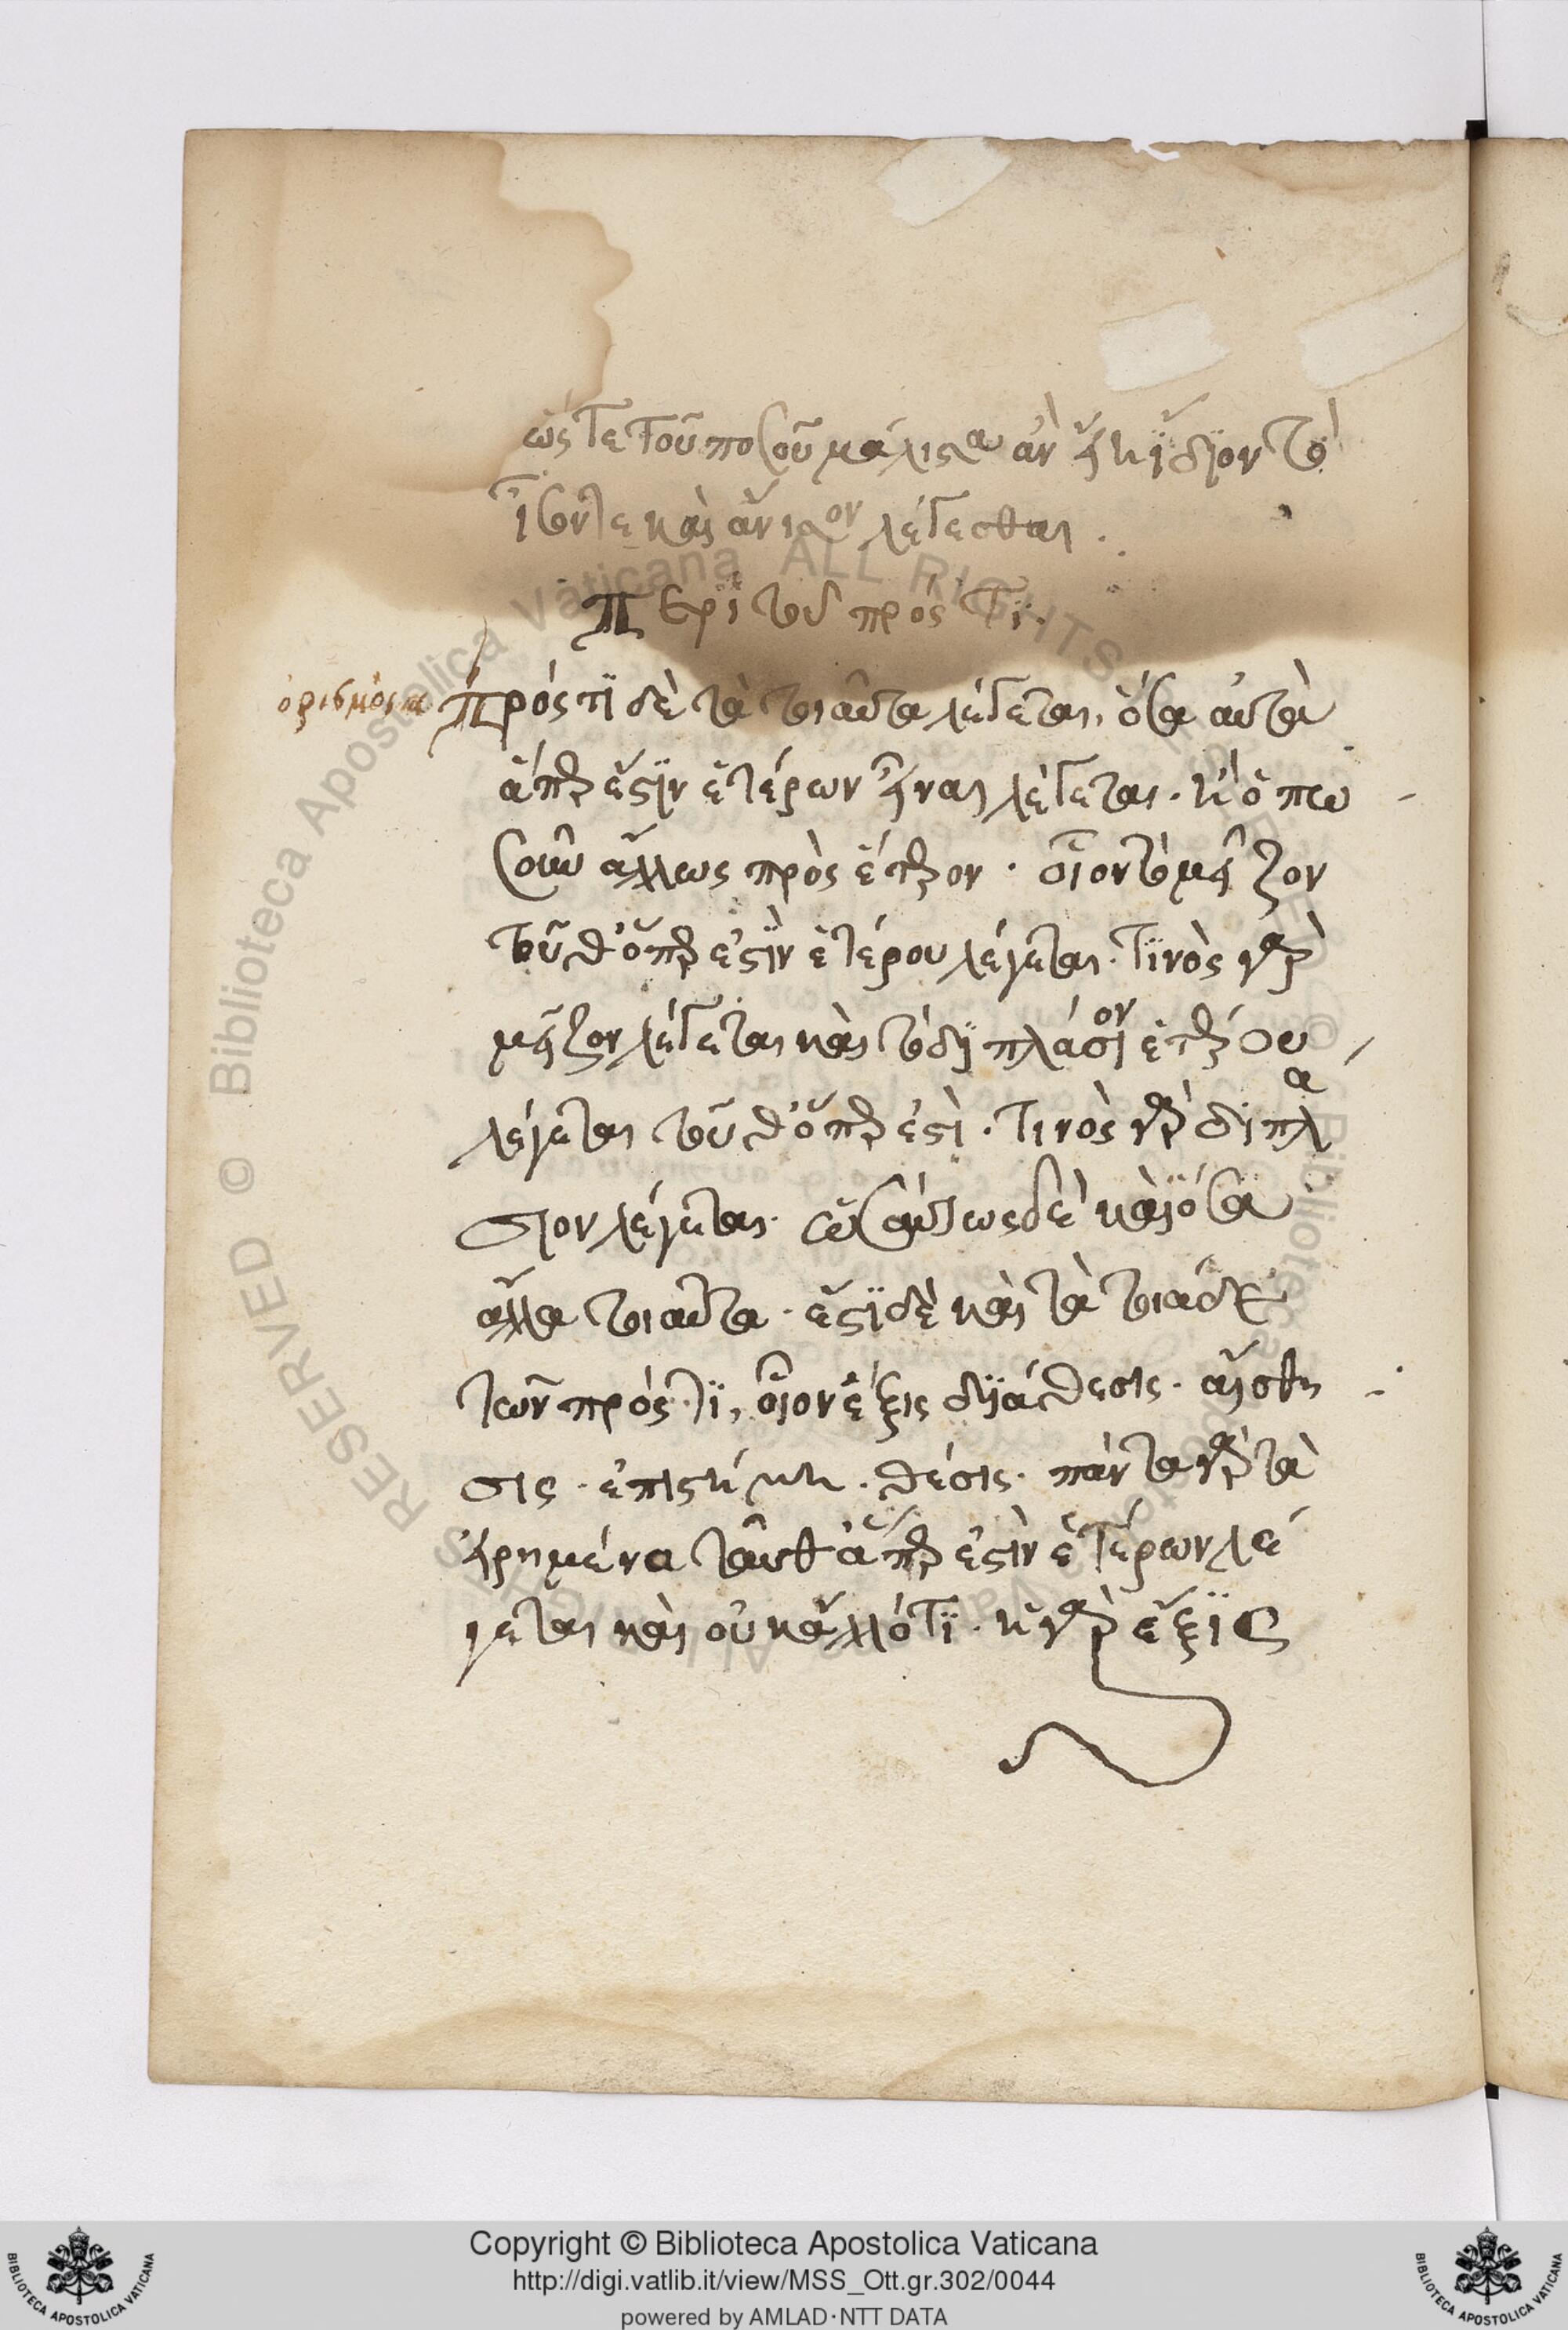 ὥςτε τοῦ ποσοῦ μάλιστα ἂν εἴη ἴδϊον τὸ
ἴσόντε καὶ ἄνισον λέγεσθαι .
Περὶ τοῦ πρός τι.
ὁρισμός πρός τϊ δὲ τὰ τοιαῦτα λέγεται, ὅσα αὐτὰ
ἅπερ ἐστὶν ἑτέρων εἶναι λέγεται. ἢ ὁπω
σοῦν ἄλλως πρὸς ἕτερον . οἷον τὸ μεῖζον
τοῦθ' ὅπερ ἐστὶν ἑτέρου λέγεται. τϊνὸς γὰρ
μεῖζον λέγεται καὶ τὸ διπλάσιον ἑτέρου
λέγεται τοῦθ' ὅπερ ἐστὶ . τινὸς γὰρ διπλά
σιον λέγεται. ὡσαύτως δὲ καὶ ὅσα
ἄλλα τοιαῦτα . ἔστϊ δὲ καὶ τὰ τοιάδε
τῶν πρός τϊ, οἷον ἕξις διάθεσις . αἴσθη
σις . ἐπιστήμη . θέσις . πάντα γὰρ τὰ
εἰρημένα ταῦθ' ἅπερ ἐστὶν ἑτέρων λέ
γεται καὶ οὐκ ἄλλό τϊ . ἡ γὰρ ἕξϊς
Copyright © Biblioteca Apostolica Vaticana
http://digi.vatlib.it/view/MSS_Ott.gr.302/0044
powered by AMLAD·NTT DATA